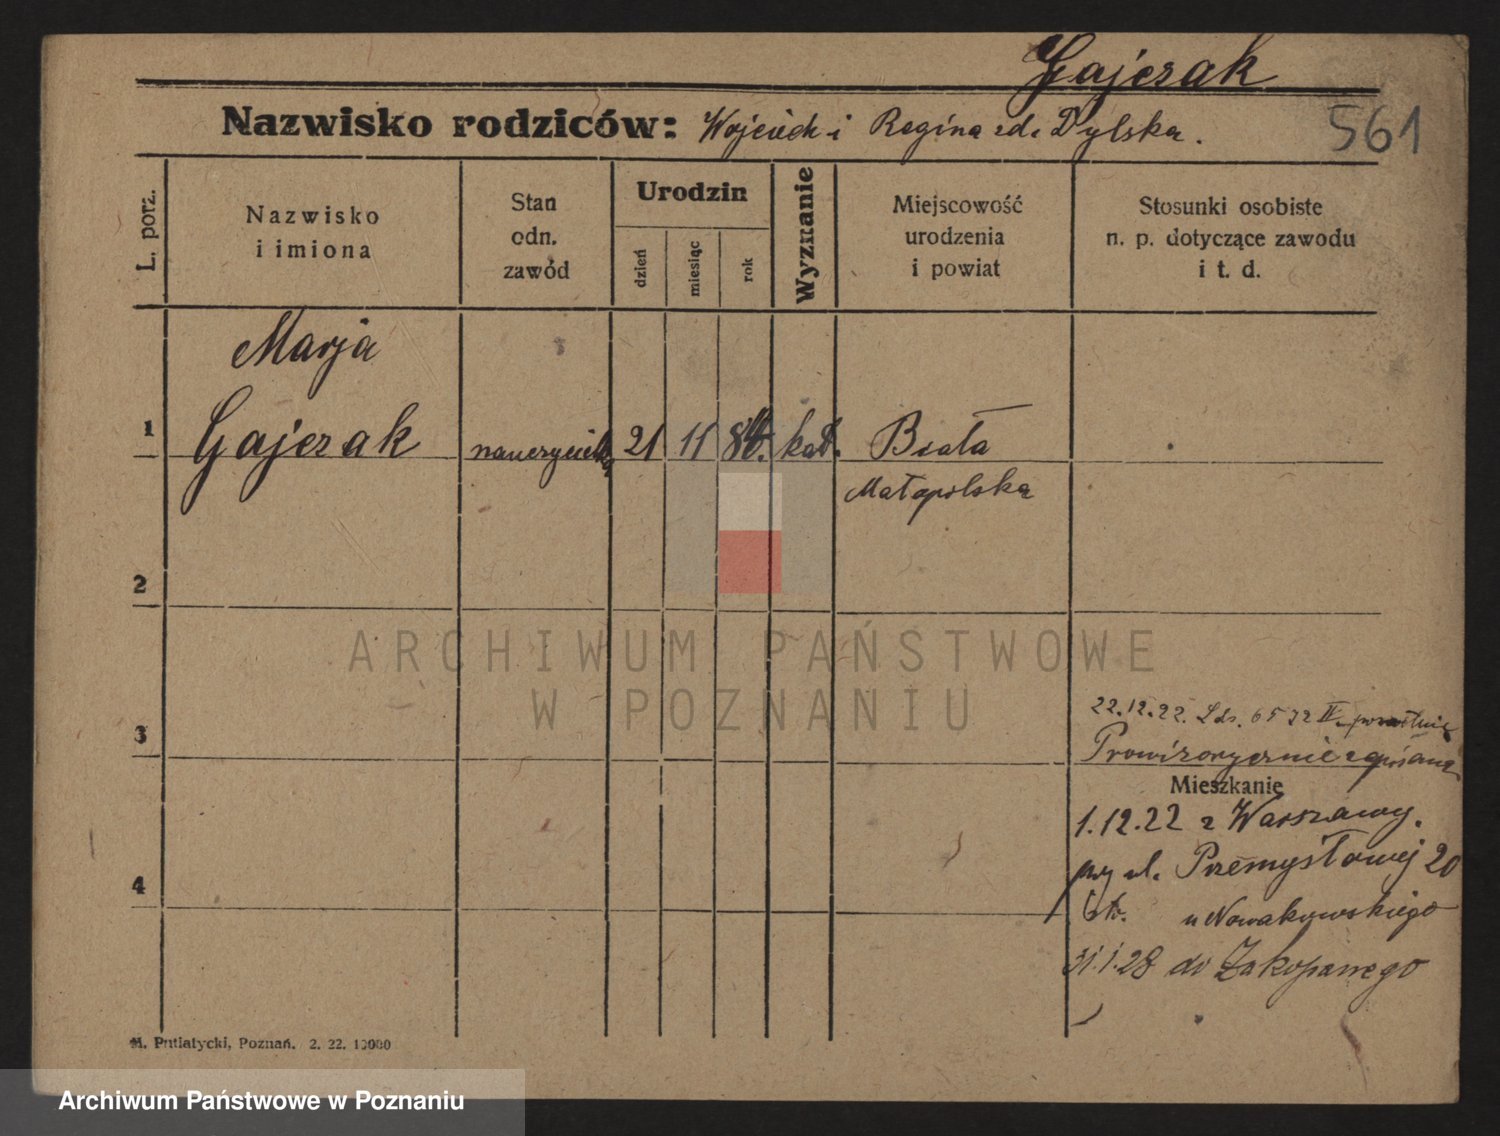 Gajczak
Nazwisko rodziców: Wojciech i Regina zd. Dylska.
561
L. porz.
Nazwisko
i imiona
Stan
odn.
zawód
Urodzin
dzień
miesiąc
rok
Wyznanie
Miejscowość
urodzenia
i powiat
Stosunki osobiste
n. p. dotyczące zawodu
i t. d.
Marja
1 Gajczak nauczycielka 21 11 kat. Biała
Małopolska
2
3
22.12.22. Ldz. 6572 II
Prowizorycznie zapisana
Mieszkanie
1.12.22 z Warszawy.
przy ul. Przemysłowej 20
4
u Nowakowskiego
31.1.28 do Zakopanego
M. Putiatycki, Poznań. 2. 22. 10000
ARCHIWUM PAŃSTWOWE
W POZNANIU
Archiwum Państwowe w Poznaniu